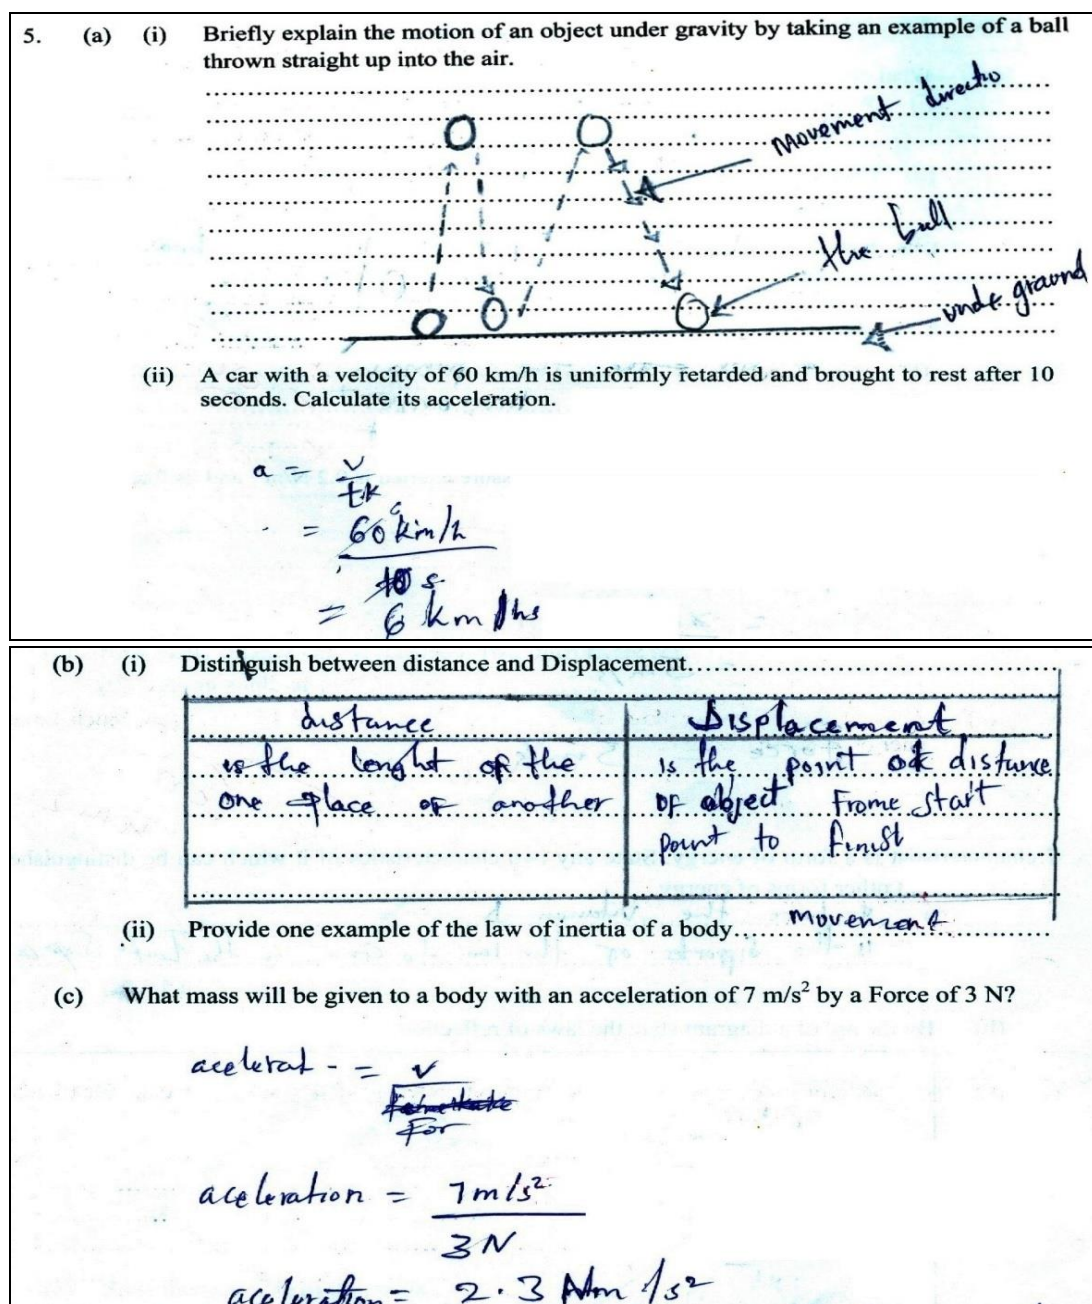 5. (a) (i) Briefly explain the motion of an object under gravity by taking an example of a ball
thrown straight up into the air.
Movement directio
the ball
unde ground
(ii) A car with a velocity of 60 km/h is uniformly retarded and brought to rest after 10
seconds. Calculate its acceleration.
a = v
= 60 km/h
10 s
= 6 km/hs
(b) (i) Distinguish between distance and Displacement
distance Displacement
is the lenght of the is the point distance
one place of another of object Frome start
point to finist
(ii) Provide one example of the law of inertia of a body... movement
(c) What mass will be given to a body with an acceleration of 7 m/s² by a Force of 3 N?
acelerat - = v
For
aceleration = 7m/s²
3N
aceleration = 2.3 Nm/s²